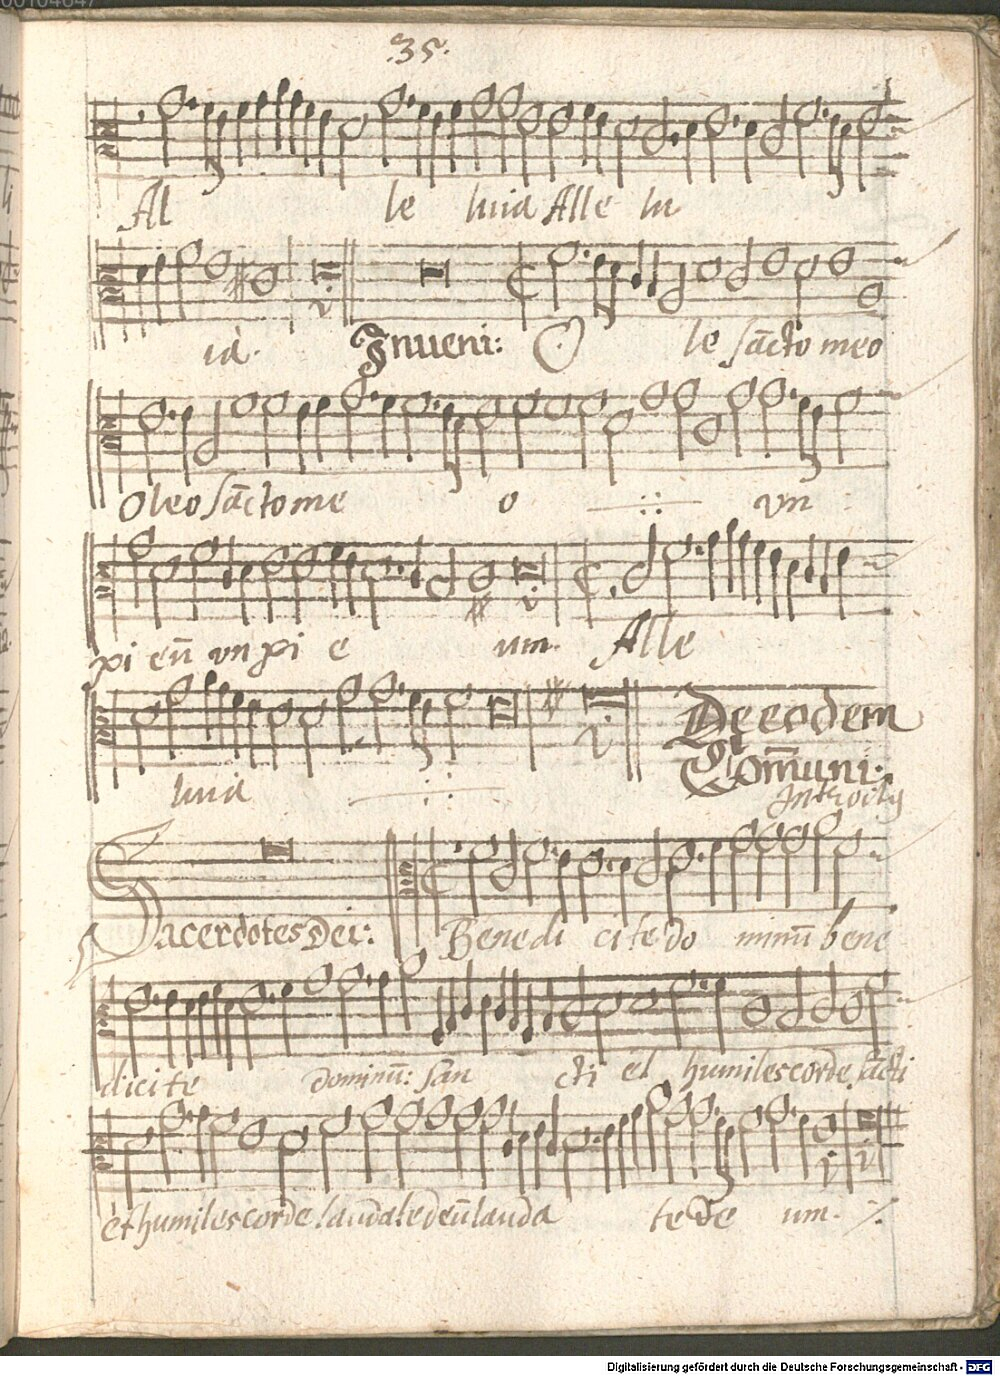 .35.
Al le luia Alle lu
ia. Inueni: O le sācto meo
Oleo sācto me o vn
pi eū vn pi e um. Alle
luia
De eodem
Et Com̄uni:
Introitq
Sacerdotes Dei: Bene di cite do minū bene
dicite dominū: san cti et humiles corde sācti
et humiles corde laudate deū lauda te De um. ./.
Digitalisierung gefördert durch die Deutsche Forschungsgemeinschaft - DFG